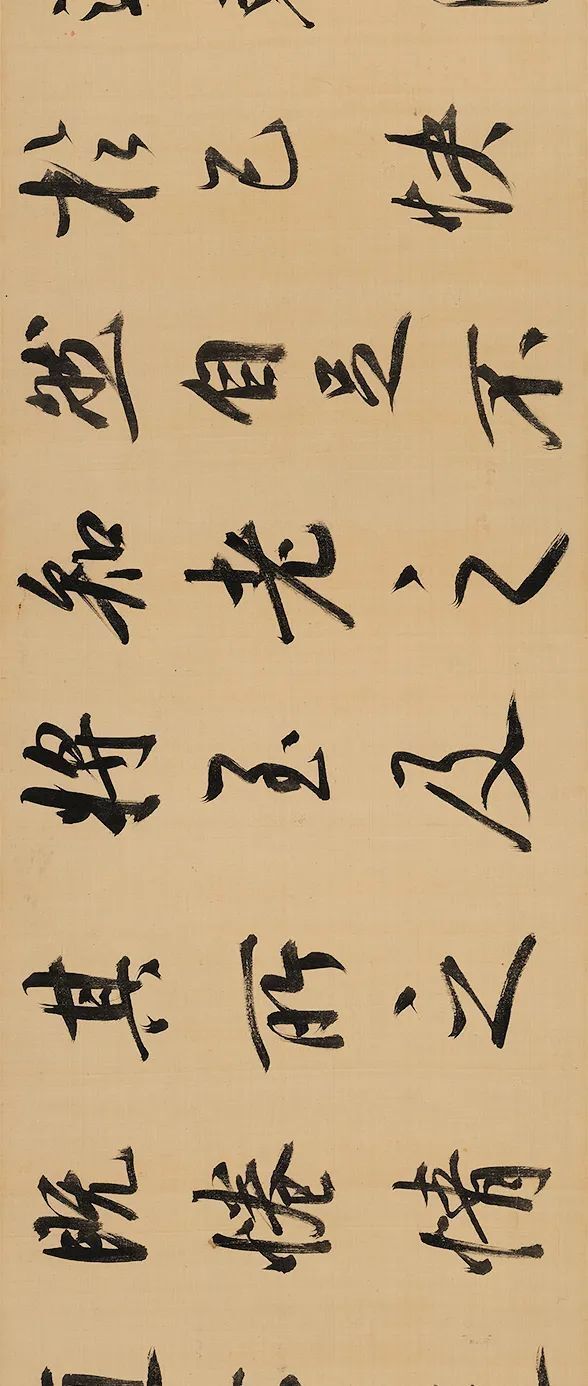 於己快
然自足不
知老之
將至及
其所之
既惓情